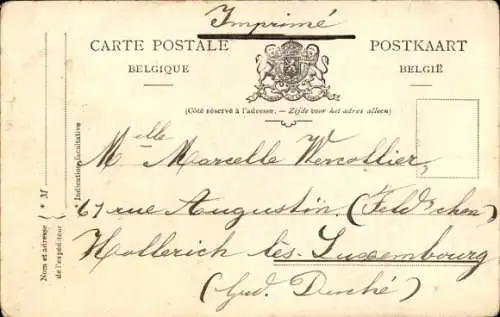 Imprimé
CARTE POSTALE POSTKAART
BELGIQUE BELGIË
(Côté réservé à l'adresse. — Zijde voor het adres alleen)
Melle Marcelle Wercollier,
67 rue Augustin, (Feldchen)
Hollerich lès-Luxembourg
(Grd. Duché)
* M
Nom et adresse
de l'expéditeur
* Indications facultative